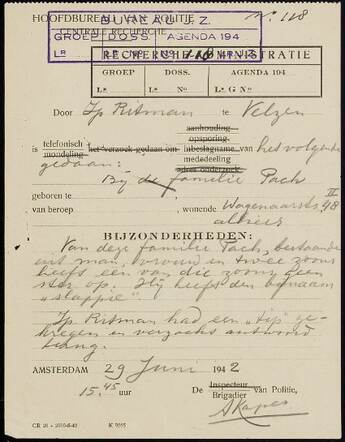 HOOFDBUREAU VAN POLITIE
CENTRALE RECHERCHE
No. 118
BUREAU J.Z.
GROEP DOSS. AGENDA 194
Lr No. No. 118 Gr. JZ
RECHERCHE-ADMINISTRATIE
GROEP DOSS. AGENDA 194
Lr. No. Lr G No
Door Ip Ritman te Velzen
is telefonisch mondeling het verzoek gedaan om aanhouding opsporing inbeslagname mededeeling adres onderzoek van het volgende
gedaan:
Bij de familie Pach
geboren te
van beroep wonende Wagenaarstr 48 II
alhier
BIJZONDERHEDEN:
Van deze familie Pach, bestaande
uit man, vrouw en twee zoons
heeft een van die zoons geen
ster op. Hij heeft den bijnaam
"slappie"
Ip Ritman had een "tip" ge-
kregen en verzocht antwoord
AMSTERDAM 29 Juni 1942
15.45 uur
De Inspecteur Brigadier van Politie,
CR 28 - 2000-6-42 K 9555